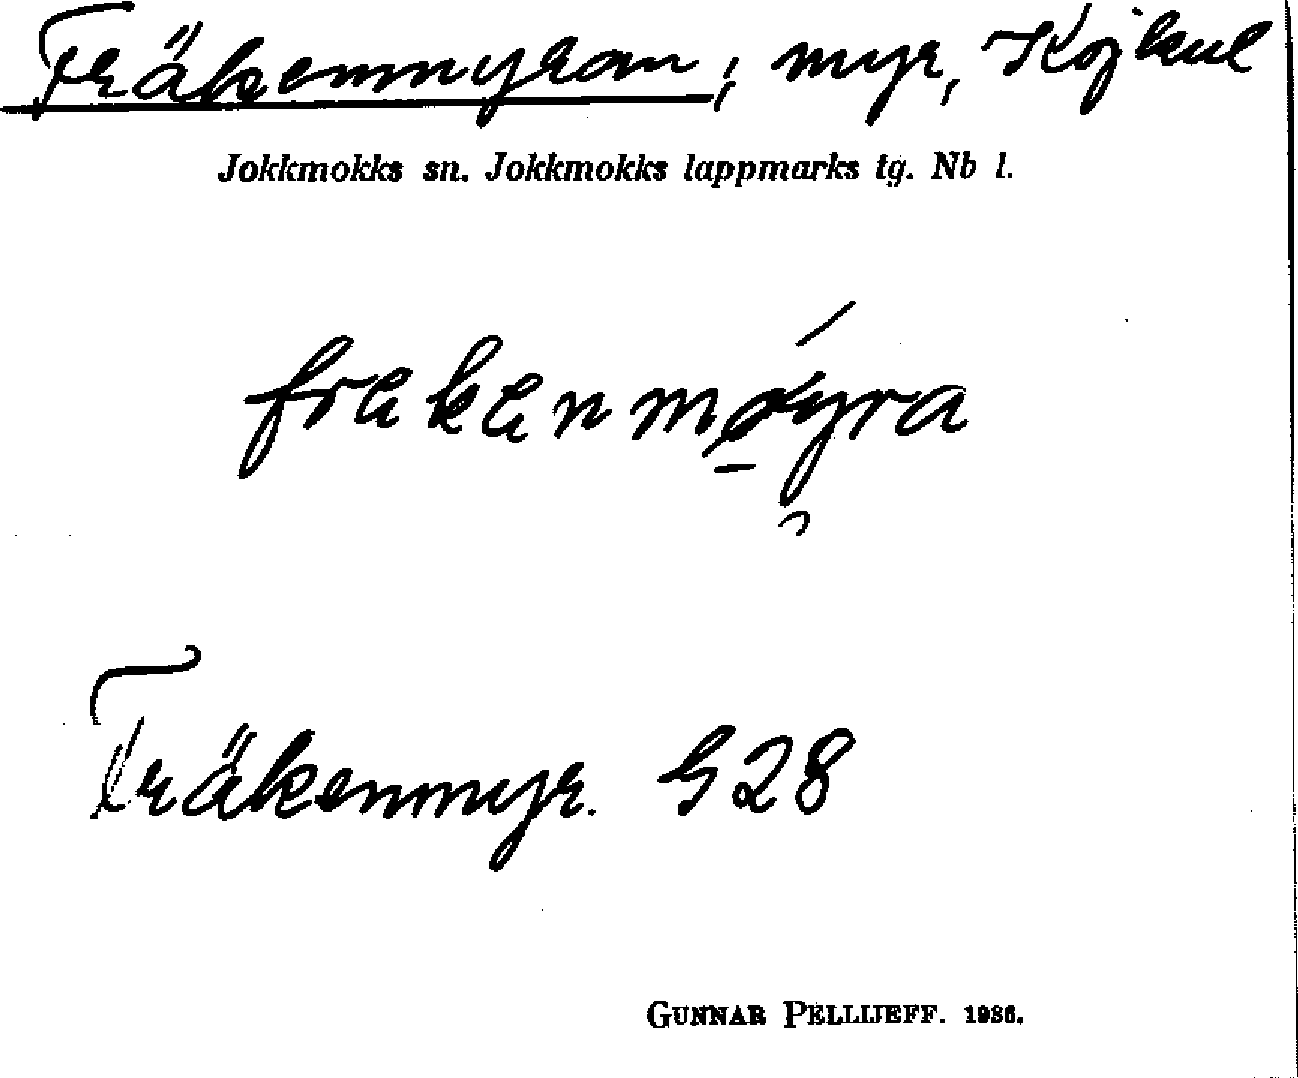 Fräkenmyran, myr, Kojkul
Jokkmokks sn. Jokkmokks lappmarks tg. Nb l.
frekenmøyra
Fräkenmyr. G28
GUNNAR PELLIJEFF. 1936.